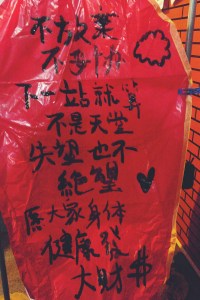 不放棄
不妥協
下一站就算
不是天堂
失望也不
絕望
願大家身体
健康發
大財